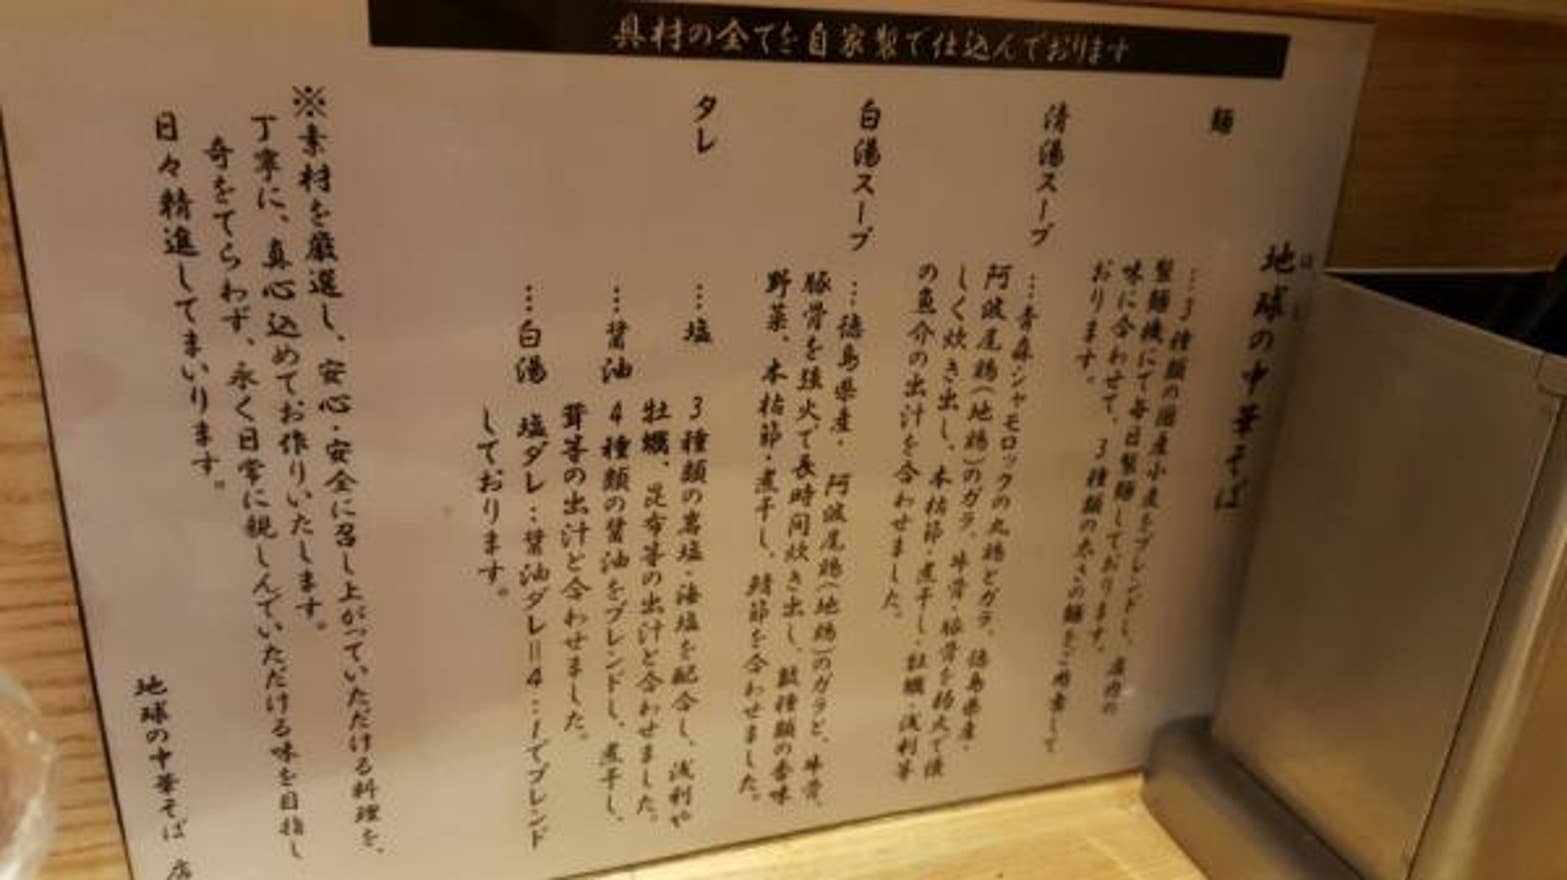 具材の全てを自家製で仕込んでおります
地球の中華そば
麺
…3種類の国産小麦をブレンドし、店内の
製麺機にて毎日製麺しております。
味に合わせて、3種類の太さの麺をご用意して
おります。
清湯スープ
…青森シャモロックの丸鶏とガラ、徳島県産・
阿波尾鶏(地鶏)のガラ、牛骨・豚骨を弱火で優
しく炊き出し、本枯節・煮干し・牡蠣・浅利等
の魚介の出汁を合わせました。
白湯スープ
…徳島県産・阿波尾鶏(地鶏)のガラと、牛骨、
豚骨を強火で長時間炊き出し、数種類の香味
野菜、本枯節・煮干し、鯖節を合わせました。
タレ
…塩
3種類の岩塩・海塩を配合し、浅利や
牡蠣、昆布等の出汁と合わせました。
…醤油
4種類の醤油をブレンドし、煮干し、
茸等の出汁と合わせました。
…白湯
塩ダレ:醤油ダレ=4:1でブレンド
しております。
※素材を厳選し、安心・安全に召し上がっていただける料理を、
丁寧に、真心込めてお作りいたします。
奇をてらわず、永く日常に親しんでいただける味を目指し
日々精進してまいります。
地球の中華そば 店